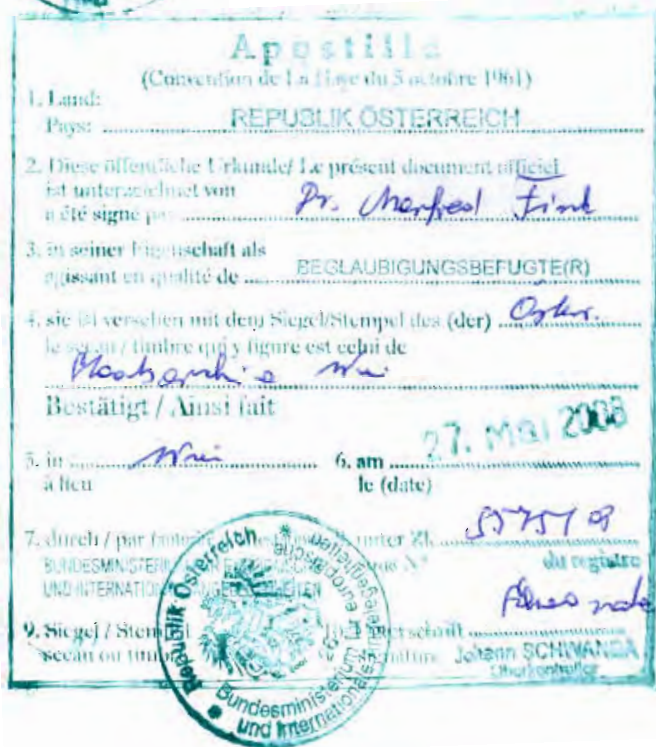 Apostille
(Convention de La Haye du 5 octobre 1961)
1. Land:
Pays: REPUBLIK ÖSTERREICH
2. Diese öffentliche Urkunde/ Le présent document officiel
ist unterzeichnet von
a été signé par Dr. Manfred Fink
3. in seiner Eigenschaft als
agissant en qualité de BEGLAUBIGUNGSBEFUGTE(R)
4. sie ist versehen mit dem Siegel/Stempel des (der)
le sceau / timbre qui y figure est celui de
Bestätigt / Ainsi fait
5. in Wien 6. am 27. MAI 2008
à lieu le (date)
7. durch / par unter Zl. 5575/08
BUNDESMINISTERIUM du registre
UND INTERNATIONALE ANGELEGENHEITEN
9. Siegel / Stempel 10. Unterschrift
sceau ou timbre signature Johann SCHWANDA
Oberkontrollor
Republik Österreich
Bundesministerium
europäische
und internationale
Angelegenheiten